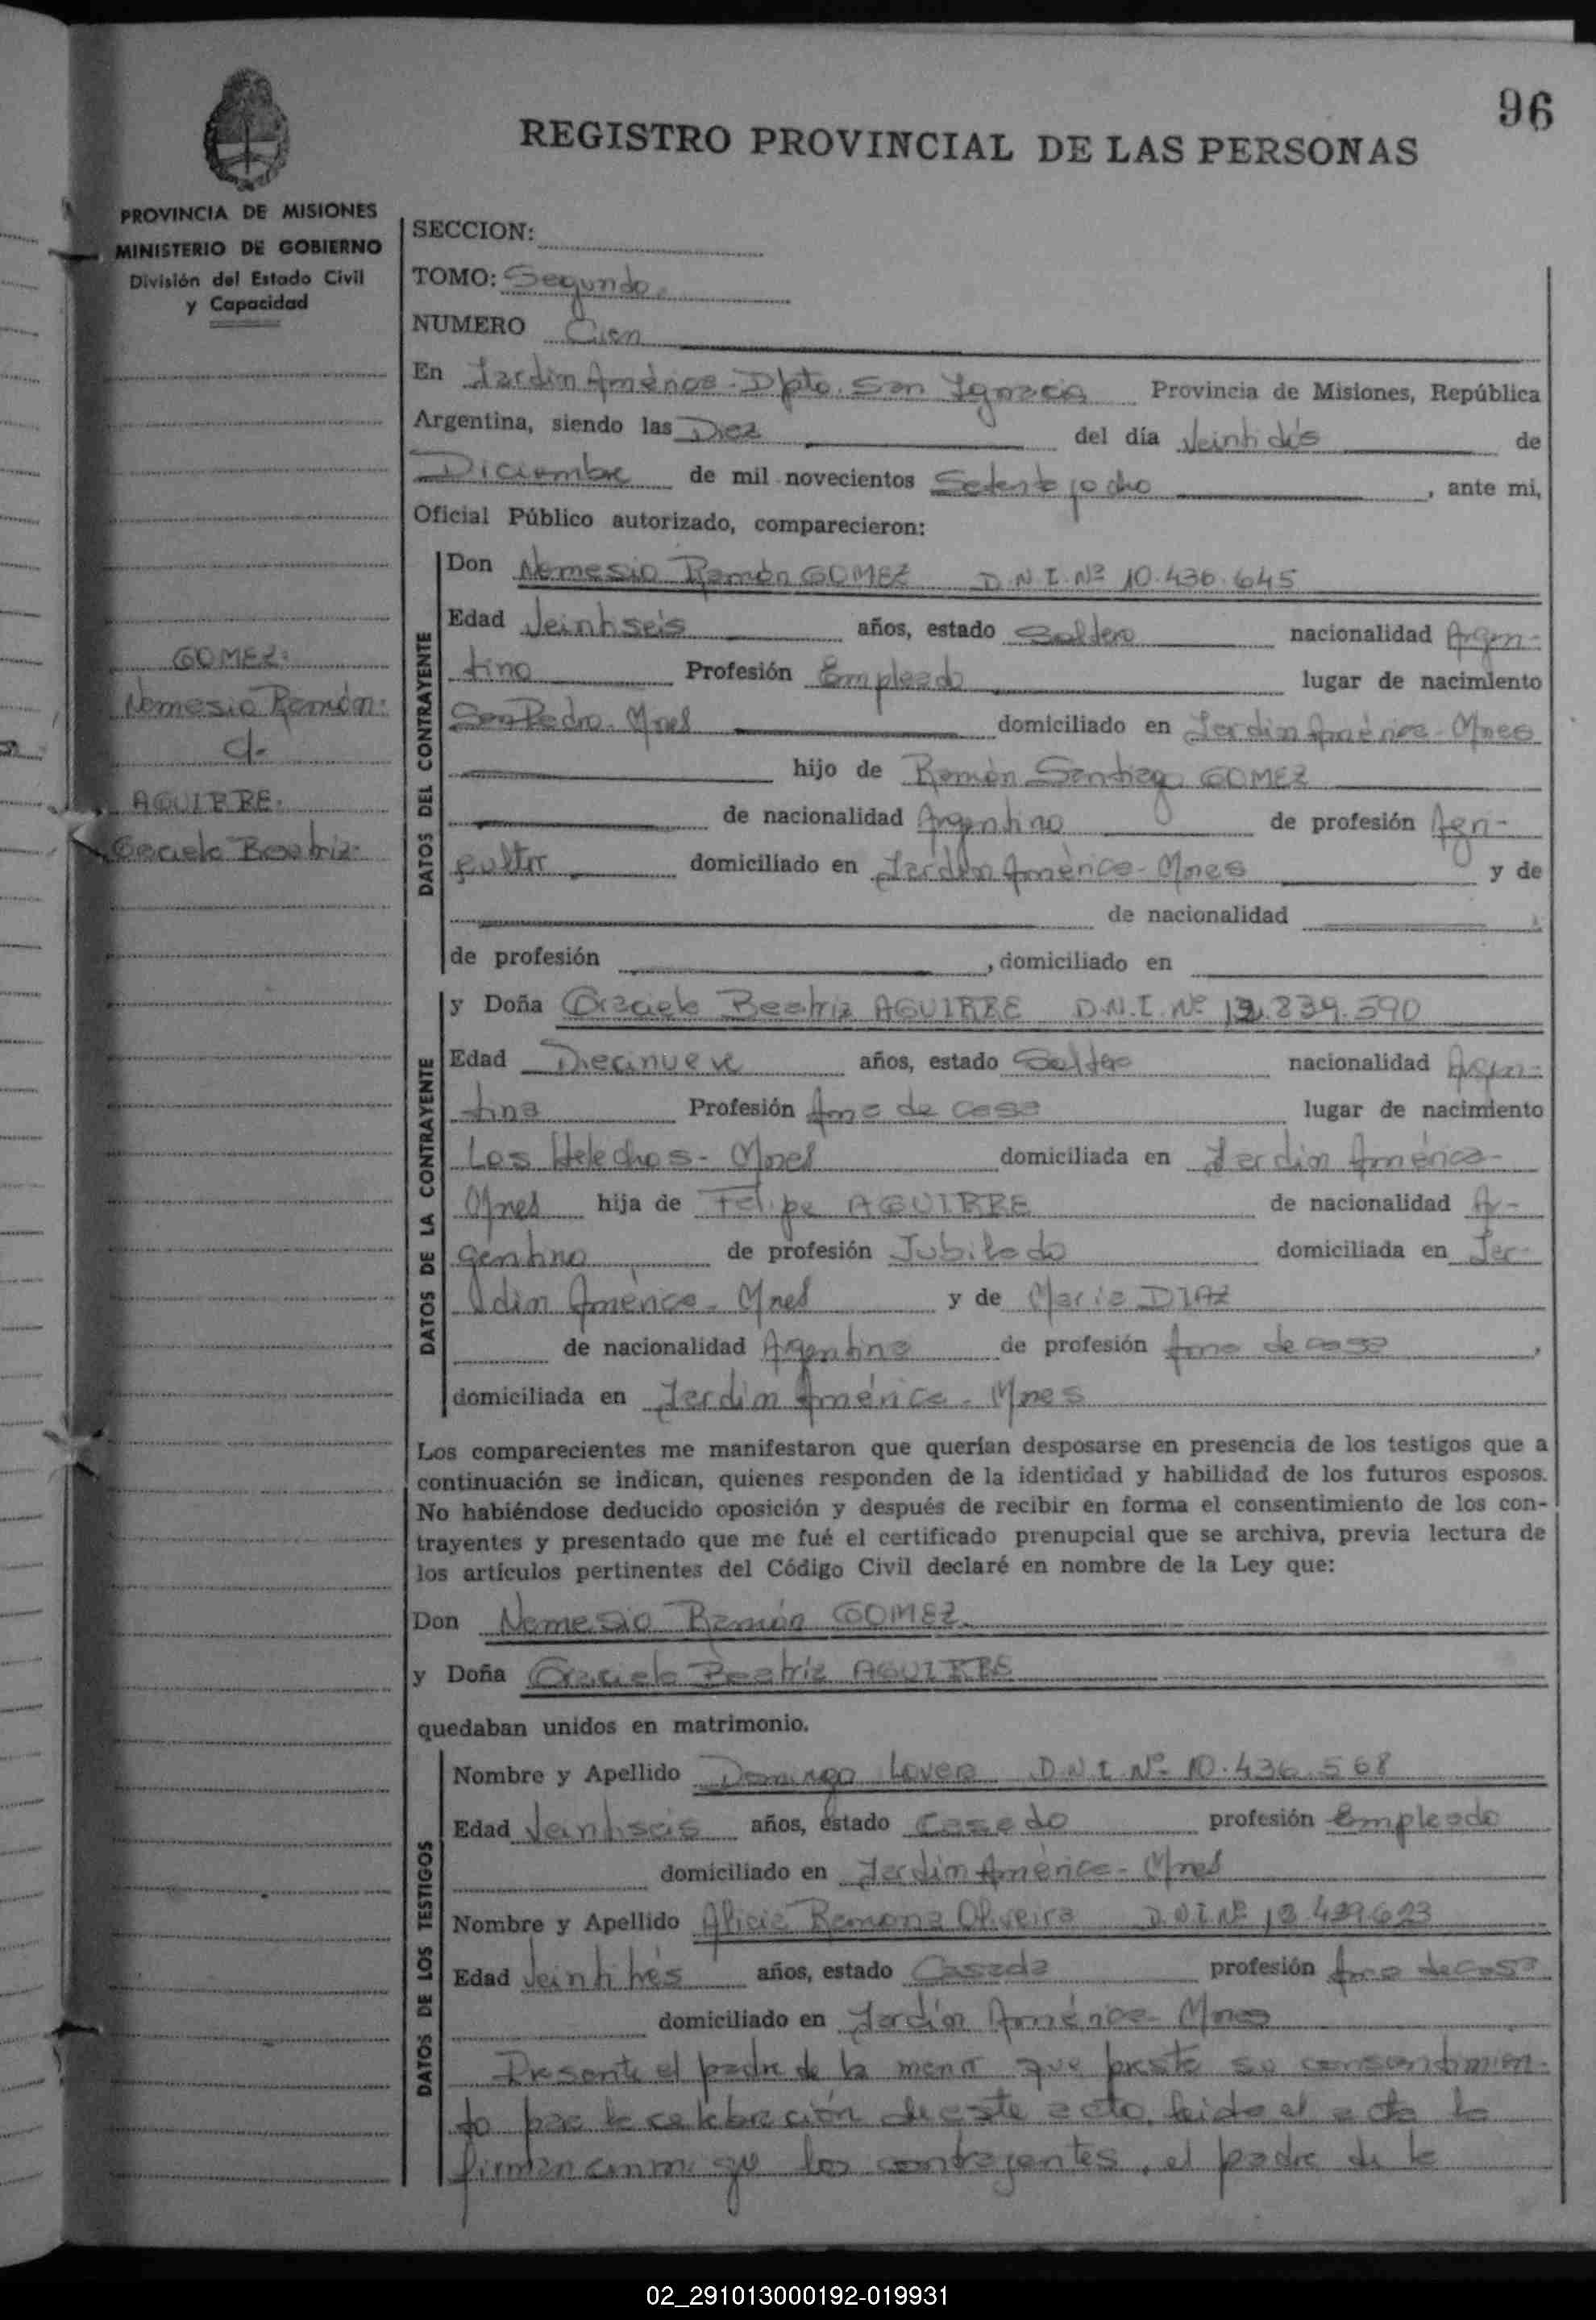 96
REGISTRO PROVINCIAL DE LAS PERSONAS
PROVINCIA DE MISIONES
MINISTERIO DE GOBIERNO
División del Estado Civil
y Capacidad
GOMEZ:
Nemesio Ramón:
c/-
AGUIRRE:
Graciela Beatriz
SECCION:
TOMO: Segundo
NUMERO Cien
En Jardin América - Dpto. San Ignacio Provincia de Misiones, República
Argentina, siendo las Diez del día Veintidós de
Diciembre de mil novecientos Setenta y ocho, ante mi,
Oficial Público autorizado, comparecieron:
DATOS DEL CONTRAYENTE
Don Nemesio Ramón GOMEZ D.N.I. Nº 10.436.645
Edad Veintiseis años, estado Soltero nacionalidad Argen-
tino Profesión Empleado lugar de nacimiento
San Pedro - Mnes domiciliado en Jardin América - Mnes
hijo de Ramón Santiago GOMEZ
de nacionalidad Argentino de profesión Agri-
cultor domiciliado en Jardin América - Mnes y de
de nacionalidad
de profesión , domiciliado en
DATOS DE LA CONTRAYENTE
y Doña Graciela Beatriz AGUIRRE D.N.I. Nº .839.590
Edad Diecinueve años, estado Soltera nacionalidad Argen-
tina Profesión Ama de casa lugar de nacimiento
Los Helechos - Mnes domiciliada en Jardin América -
Mnes hija de Felipe AGUIRRE de nacionalidad Ar-
gentino de profesión Jubilado domiciliada en Jar-
din América - Mnes y de Maria DIAZ
de nacionalidad Argentina de profesión Ama de casa ,
domiciliada en Jardin América - Mnes
Los comparecientes me manifestaron que querían desposarse en presencia de los testigos que a
continuación se indican, quienes responden de la identidad y habilidad de los futuros esposos.
No habiéndose deducido oposición y después de recibir en forma el consentimiento de los con-
trayentes y presentado que me fué el certificado prenupcial que se archiva, previa lectura de
los artículos pertinentes del Código Civil declaré en nombre de la Ley que:
Don Nemesio Ramón GOMEZ
y Doña Graciela Beatriz AGUIRRE
quedaban unidos en matrimonio.
DATOS DE LOS TESTIGOS
Nombre y Apellido Domingo Lovera D.N.I. Nº 10.436.568
Edad Veintiseis años, estado Casado profesión Empleado
domiciliado en Jardin América - Mnes
Nombre y Apellido Alicia Ramona Oliveira D.N.I. Nº
Edad Veintitrés años, estado Casada profesión Ama de casa
domiciliado en Jardin América - Mnes
Presente el padre de la menor que presta su consentimien-
to para la celebración de este acto, leida el acta la
firman conmigo los contrayentes, el padre de la
02_291013000192-019931